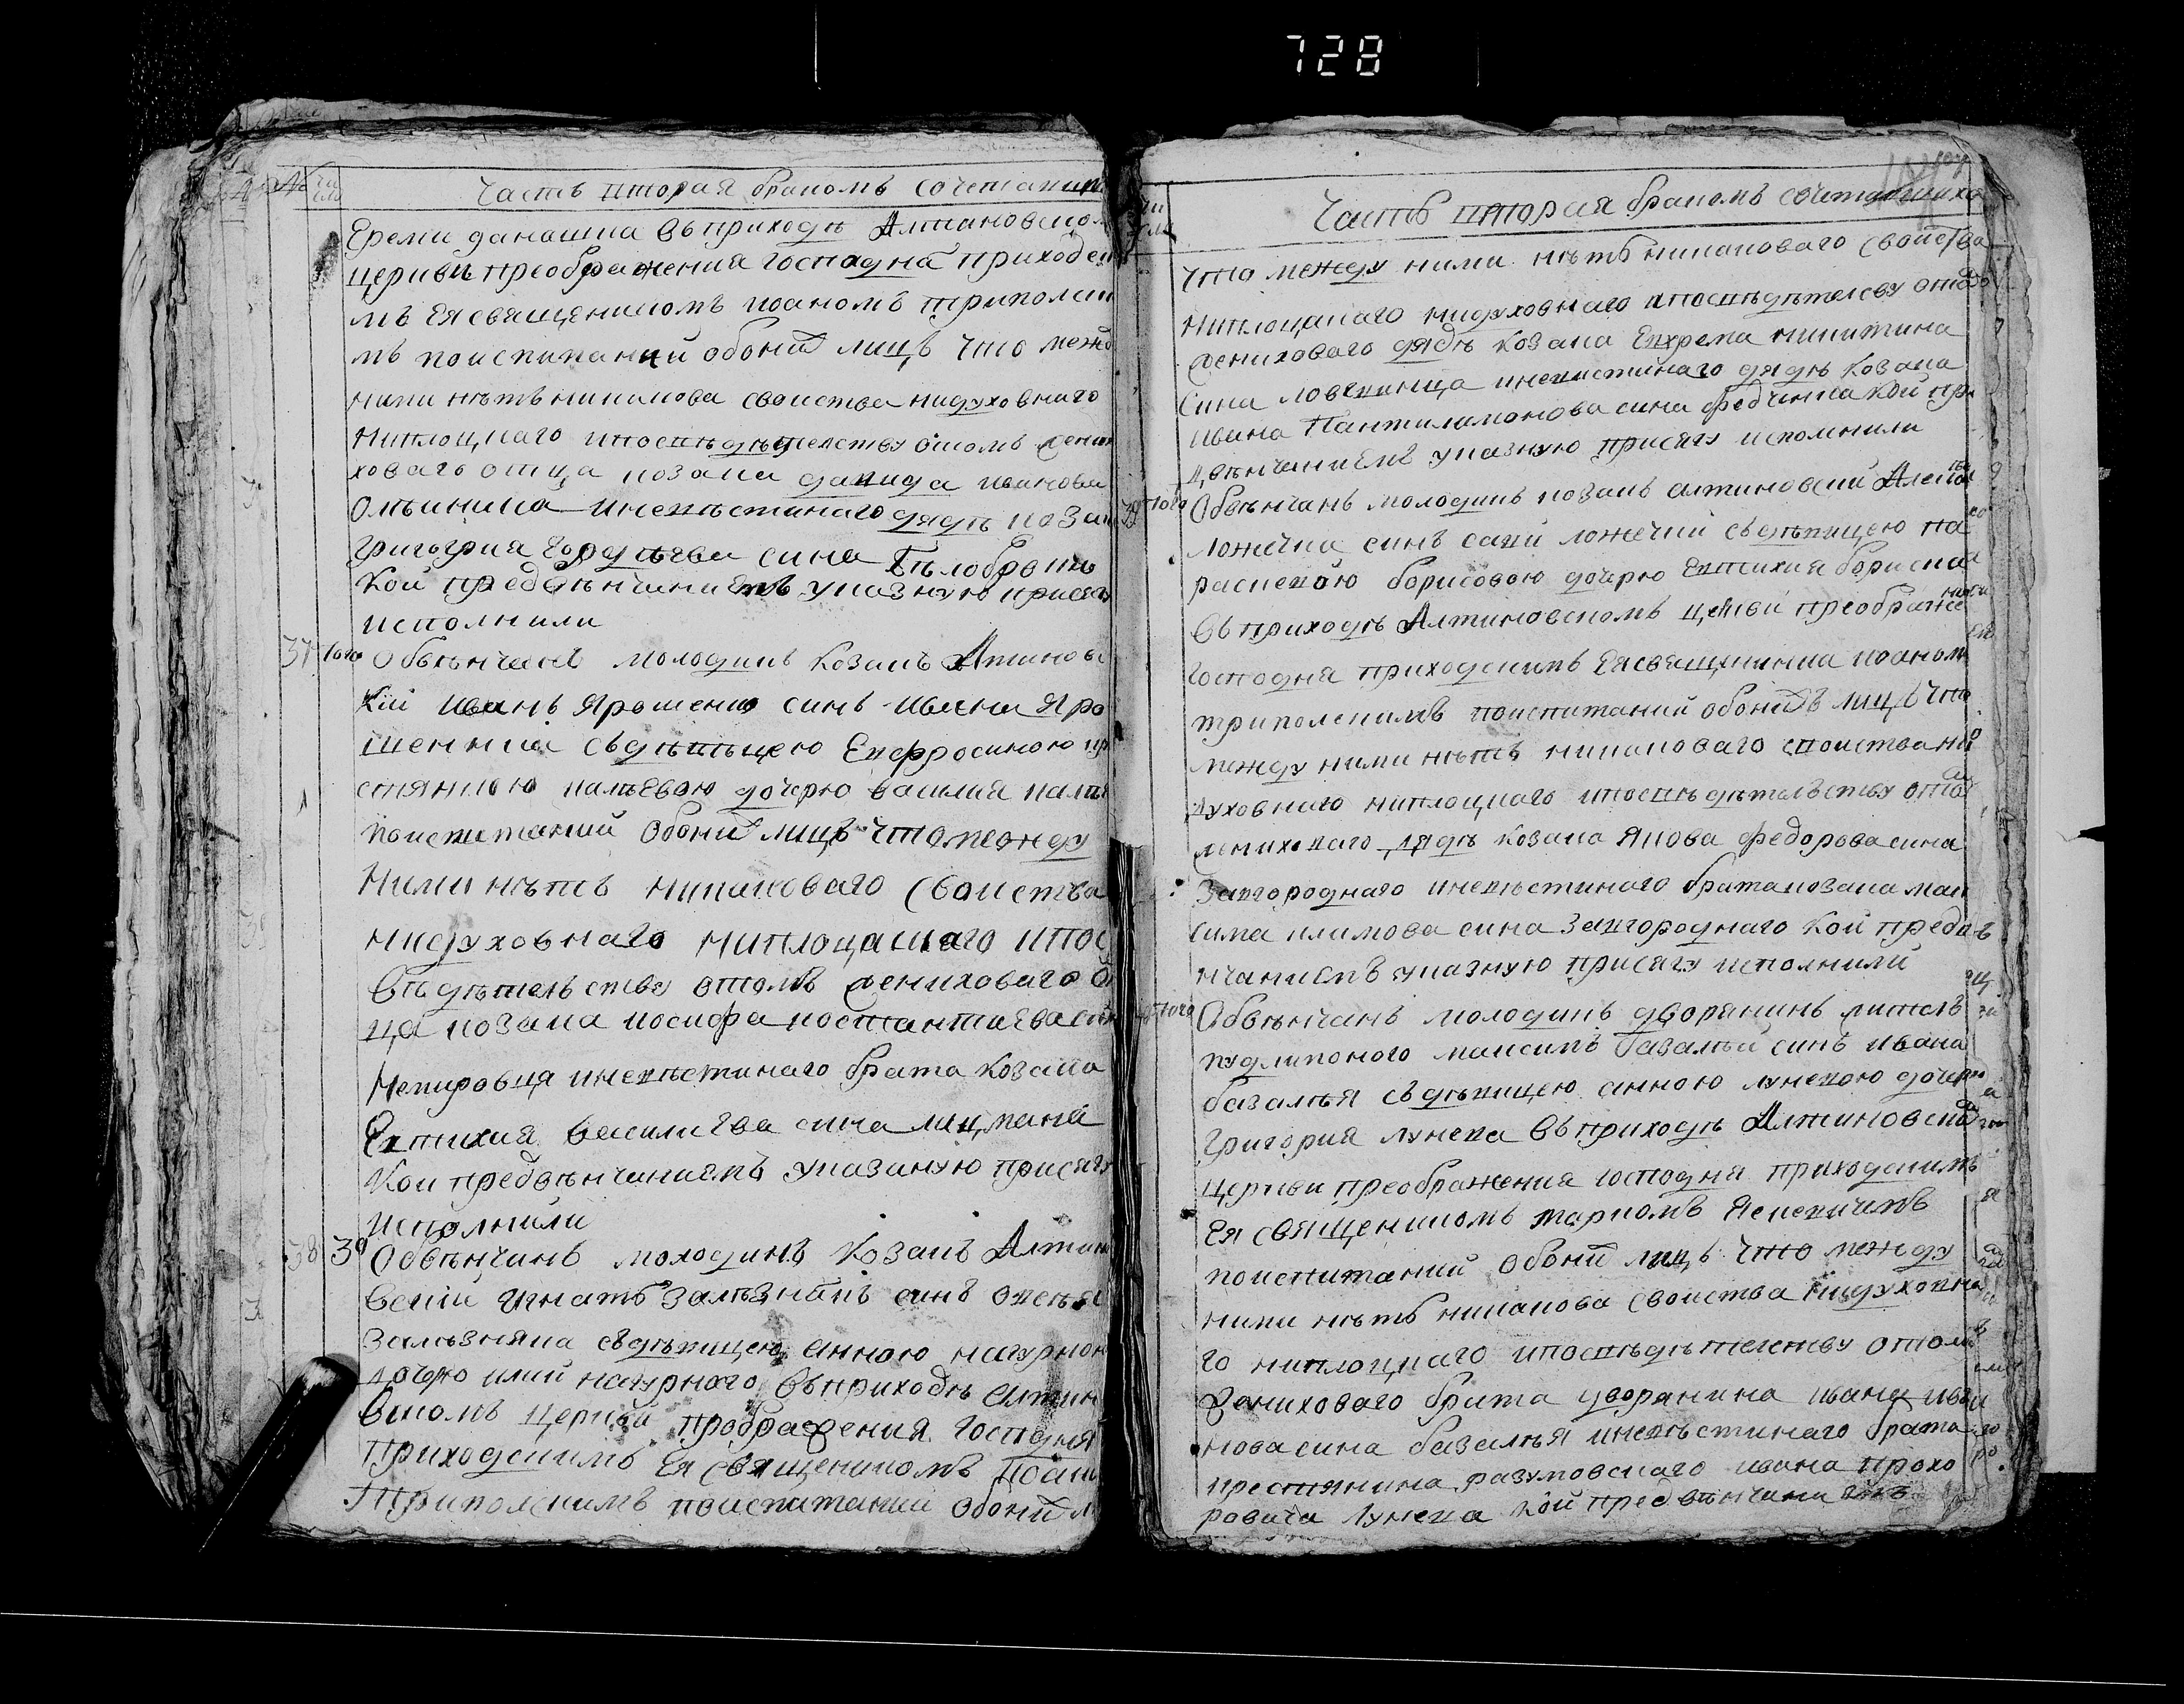 728
Часть вторая бракомъ сочетани
Ереми данашка въ приходѣ Алтиновско
церкви преображения господна приходски
мъ ея священикомъ иоаномъ триполски
мъ поиспитаний обоий лицъ что межд
ними нѣтъ никакова своиства нидуховнаго
ниплоцкаго ипосвѣдѣтелству отомъ жени
ховаго отца козака давида иванова
иневѣстинаго дядѣ коза
григория сина Бѣлобро
кой предвѣнчаниемъ указную присягу
исполнили
37 того Обвѣнчанъ молодикъ козакъ Алтинов
кій иванъ Ярошенко синъ ивана Яро
шенка сдѣвицею Евфросиною кре
стянкою палѣевою дочерю василия палѣ
поиспитаний обоий лицъ что между
ними нѣтъ никаковаго своиства
нидуховнаго ниплоцкаго ипос
вѣдѣтелству отомъ жениховаго о
ца козака иосифа костантиева син
Непировця иневѣстинаго брата козака
Евтихия василиева сина лицмана
кои предвѣнчаниемъ указаную присягу
исполнили
38 30 Обвѣнчанъ молодикъ козакъ Алтино
вскій игнатъ Залѣзнякъ синъ
Залѣзняка сдѣвицею анною кагурною
дочерю илий кагурного въ приходѣ алтин
вскомъ церкви преображения господня
приходскимъ ея священикомъ Иоан
Триполскимъ поиспитании обоий л
Часть вторая бракомъ сочетавшихс
что между ними нѣтъ никаковаго своиства
ниплоцкаго нидуховнаго ипосвѣдѣтелсву отомъ
жениховаго дядѣ козака Евхрема никитина
сина иневѣстинаго дядѣ козака
ивана Пантилимонова сина федченка кой пре
двѣнчаниемъ указную присягу исполнили
39 того Обвѣнчанъ молодикъ козакъ алтиновский Алекс
ложечка синъ сави ложечки сдѣвицею па
раскевою борисовою дочерю Евтихия бориска
въ приходѣ Алтиновскомъ церкви преображения
господня приходскимъ ея священика иоаном
триполскимъ поиспитаний обоихъ лицъ что
между ними нѣтъ никаковаго споиства ни
духовнаго ниплоцкаго ипосвѣдѣтелству отом
жениховаго дядѣ козака Якова федорова сина
Завгороднаго иневѣстинаго брата козака мак
сима климова сина Завгороднаго кой предвѣ
нчаниемъ указную присягу исполнили
40 того Обвѣнчанъ молодикъ дворянинъ житель
пудлипоного максимъ базалѣй синъ ивана
базалѣя сдѣвицею анною лунекою дочерю
григория лунека въ приходѣ Алтиновском
церкви преображения господня приходскимъ
ея священикомъ маркомъ Яскевичимъ
поиспитаний обоий лицъ что между
ними нѣтъ никакова своиства нидуховна
го ниплоцкаго ипосвѣдѣтелству отомъ
жениховаго брата дворанина ивана ива
нова сина базалѣя иневѣстинаго брата
крестянина разумовскаго ивана прохо
ровича лунека кой предвѣнчаниемъ